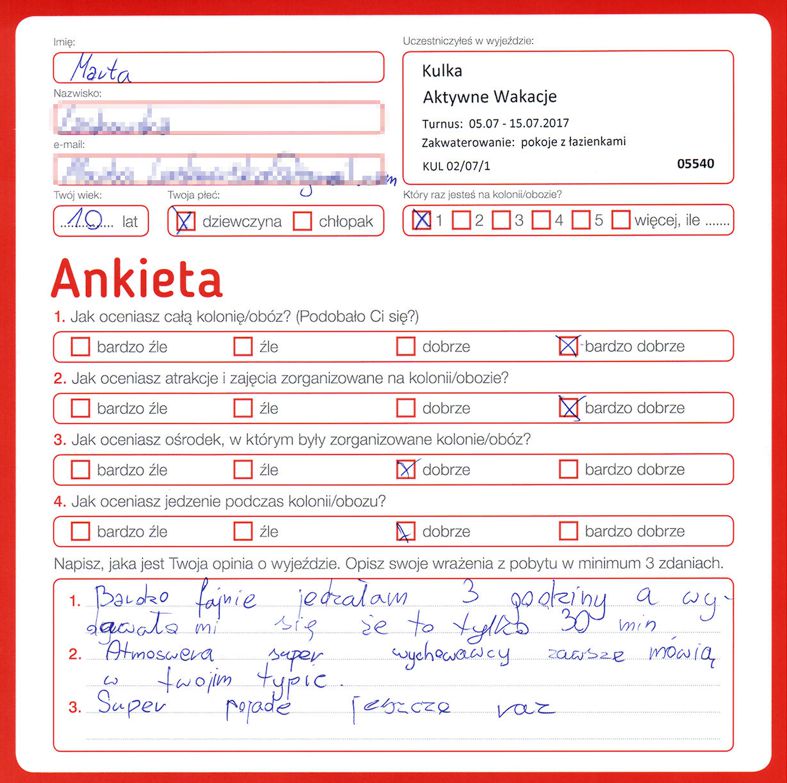 Imię:
Marta
Nazwisko:
e-mail:
Uczestniczyłeś w wyjeździe:
Kulka
Aktywne Wakacje
Turnus: 05.07 - 15.07.2017
Zakwaterowanie: pokoje z łazienkami
KUL 02/07/1 05540
Twój wiek:
10 lat
Twoja płeć:
dziewczyna chłopak
Który raz jesteś na kolonii/obozie?
1 2 3 4 5 więcej, ile .......
Ankieta
1. Jak oceniasz całą kolonię/obóz? (Podobało Ci się?)
bardzo źle źle dobrze bardzo dobrze
2. Jak oceniasz atrakcje i zajęcia zorganizowane na kolonii/obozie?
bardzo źle źle dobrze bardzo dobrze
3. Jak oceniasz ośrodek, w którym były zorganizowane kolonie/obóz?
bardzo źle źle dobrze bardzo dobrze
4. Jak oceniasz jedzenie podczas kolonii/obozu?
bardzo źle źle dobrze bardzo dobrze
Napisz, jaka jest Twoja opinia o wyjeździe. Opisz swoje wrażenia z pobytu w minimum 3 zdaniach.
1. Bardzo fajnie 3 godziny a wy-
dawało mi się że to tylko 30 min
2. Atmoswera super wychowawcy zawsze mówią
w twojim typie.
3. Super pojade jeszcze raz